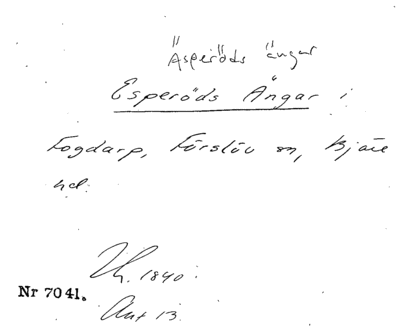 Äsperöds ängar
Esperöds Ängar i
Fogdarp, Förslöv sn, Bjäre
hd.
Lh. 1840.
Nr 7041.
Akt 13.